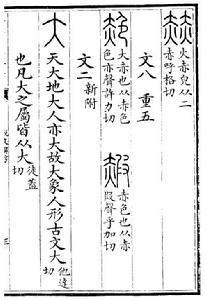 赫 火赤皃从二
赤呼格切
文八 重五
赩 大赤也从赤色
色亦聲許力切
赮 赤色也从赤
叚聲乎加切
文二 新附
大 天大地大人亦大故大象人形古文大 他達
切
也凡大之屬皆从大 徒蓋
切